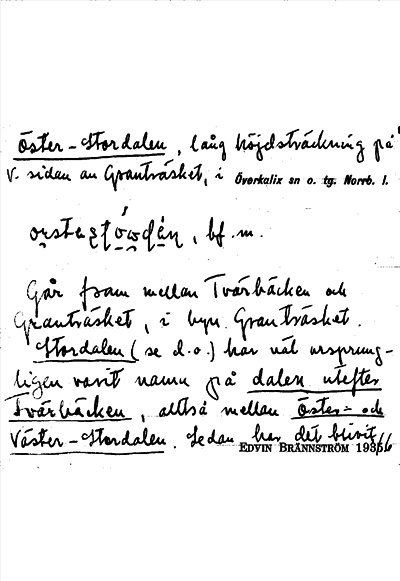 Öster-Stordalen, lång höjdsträckning på
v. sidan av Granträsket, i Överkalix sn o. tg. Norrb. l.
, bf. m.
Går fram mellan Tvärbäcken och
Granträsket, i byn Granträsket.
Stordalen (se d.o.) har väl ursprung-
ligen varit namn på dalen utefter
Tvärbäcken, alltså mellan Öster- och
Väster-Stordalen. Sedan har det blivit
EDVIN BRÄNNSTRÖM 1935